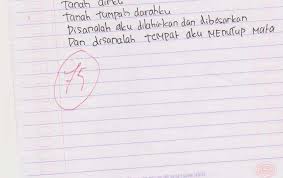 Tanah airku
Tanah tumpah darahku
Disanalah aku dilahirkan dan dibesarkan
Dan disanalah TEMPAT aku MENUTUP Mata
75